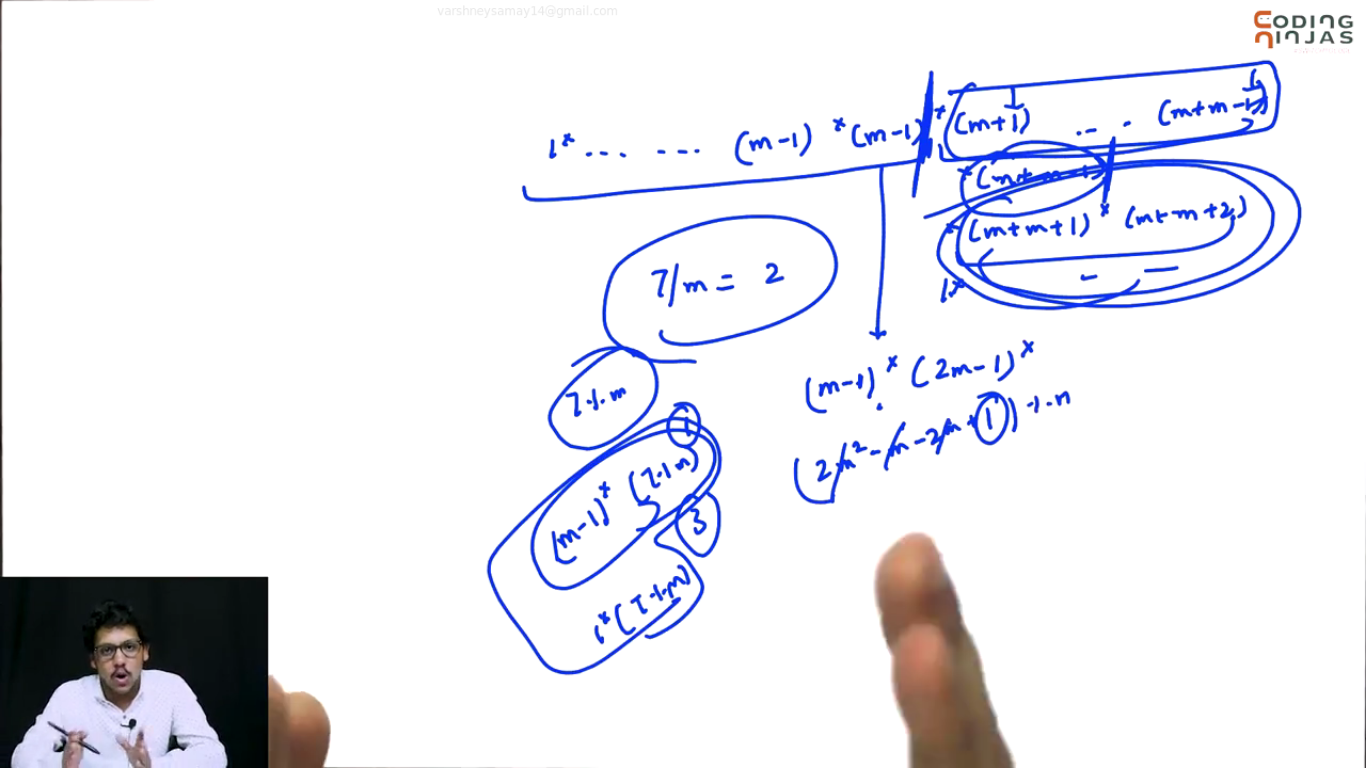 varshneysamay14@gmail.com
CODING
NINJAS
1* ... ... (m-1) * (m-1) * (m+1) ... (m+m-1)
* (m+m-1)
* (m+m+1) * (m+m+2)
1*
7/m = 2
7%m
(m-1)* (2m-1)*
(2m²-m-2m+1) % m
1
(m-1)* (7%m)
3
1* (7%m)